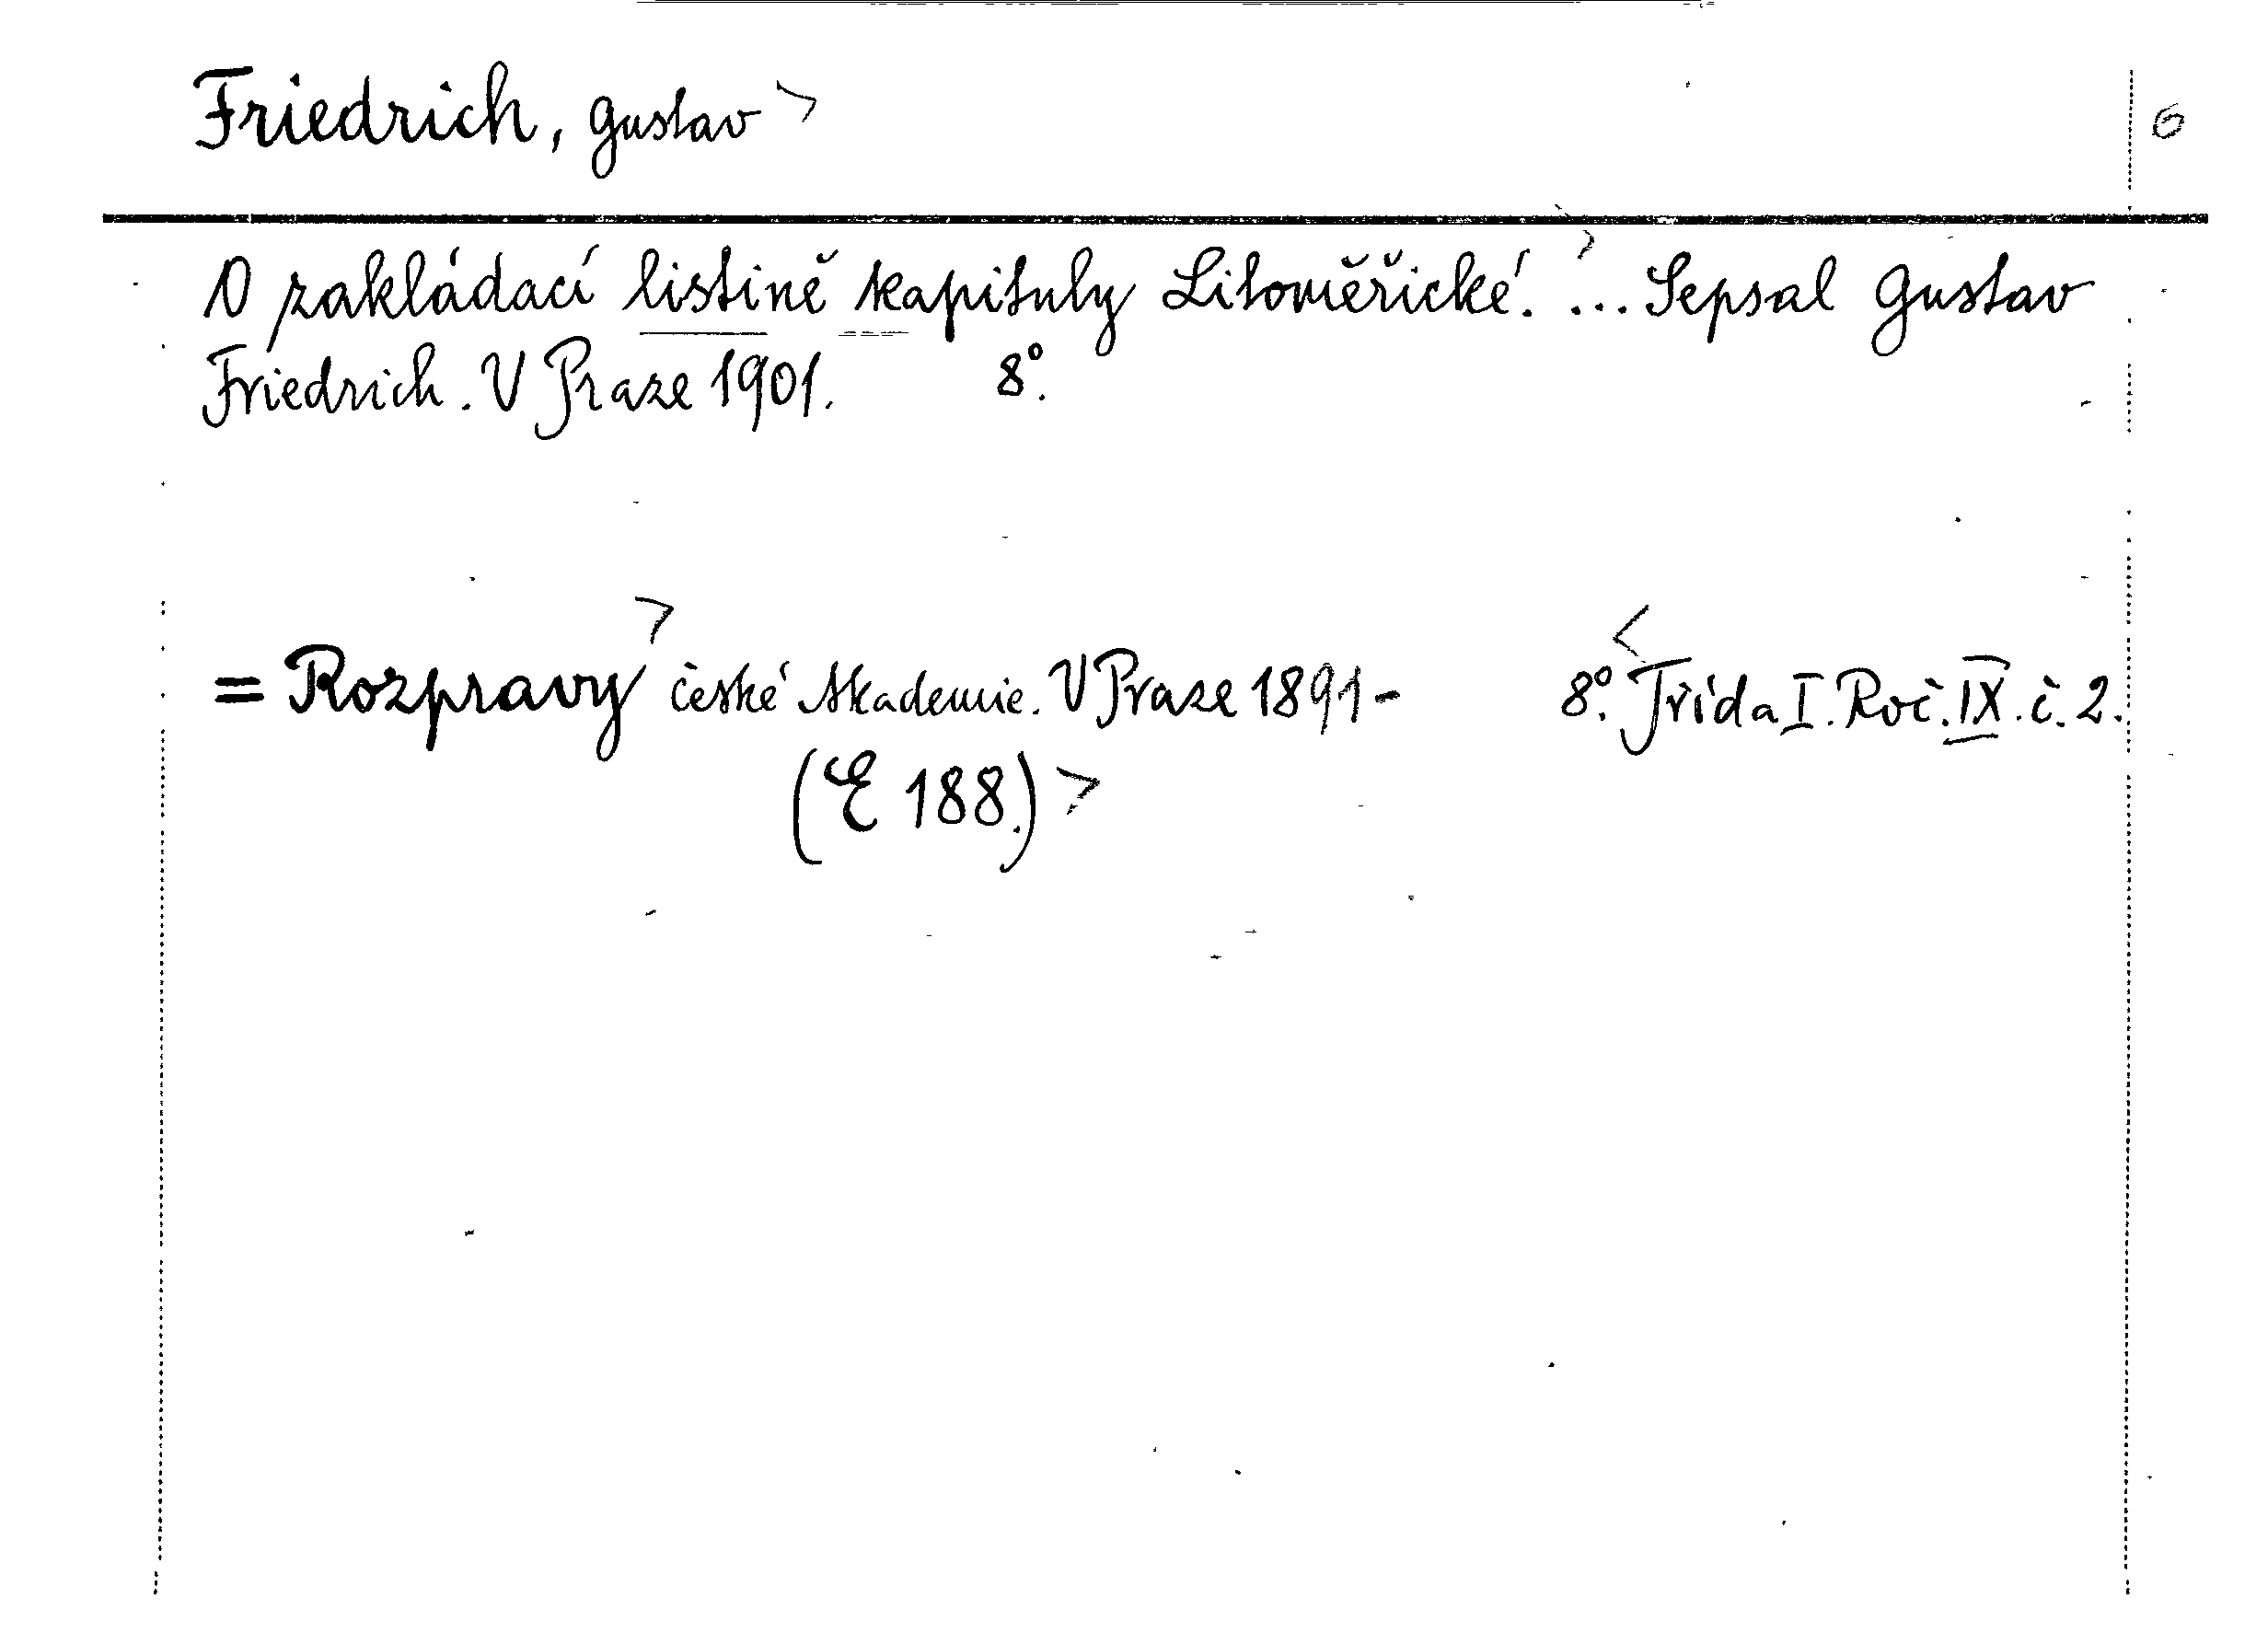 Friedrich, Gustav > 6
O zakládací listině kapituly Litoměřické. ... Sepsal Gustav
Friedrich. V Praze 1901. 8°.
= Rozpravy české Akademie. V Praze 1891- 8°. Třída I. Roč. IX. č. 2.
(E 188.) >